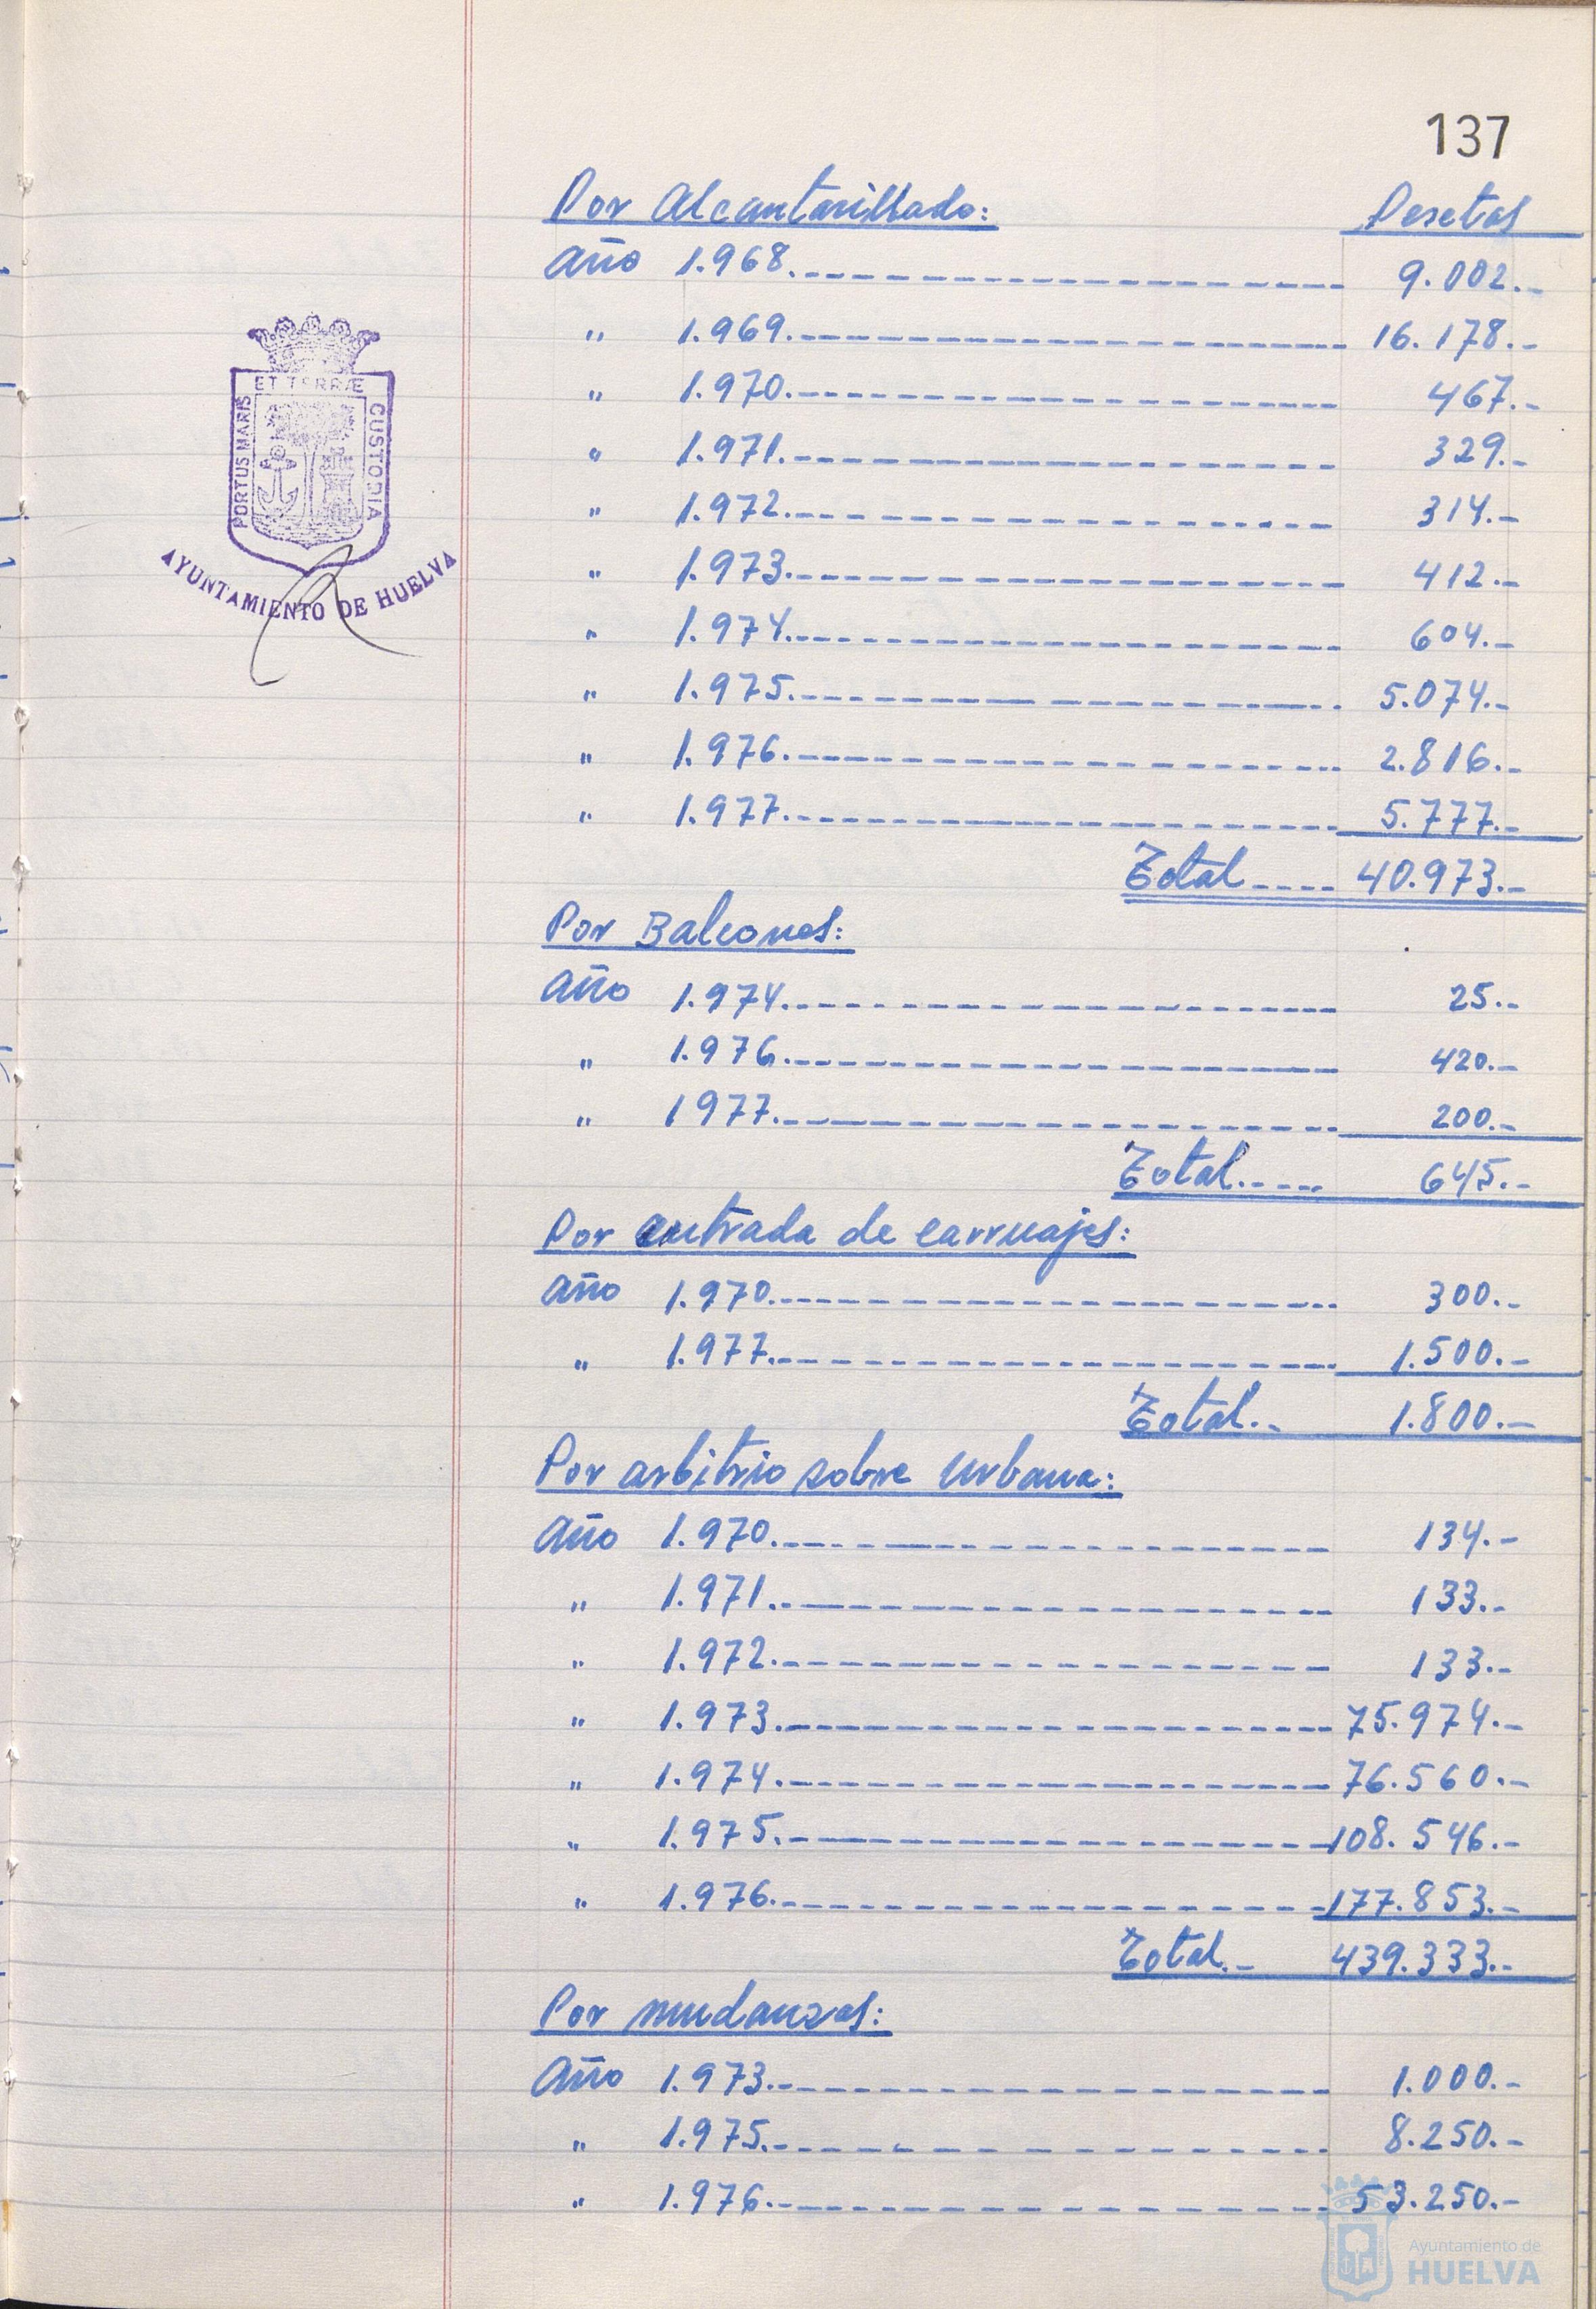 137
Por Alcantarillado: Pesetas
Año 1.968.------------ 9.002.-
" 1.969.------------ 16.178.-
" 1.970.------------ 467.-
" 1.971.------------ 329.-
" 1.972.------------ 314.-
" 1.973.------------ 412.-
" 1.974.------------ 604.-
" 1.975.------------ 5.074.-
" 1.976.------------ 2.816.-
" 1.977.------------ 5.777.-
Total ---- 40.973.-
Por Balcones:
Año 1.974.------------ 25.-
" 1.976.------------ 420.-
" 1977.------------ 200.-
Total.---- 645.-
Por entrada de carruajes:
Año 1.970.------------ 300.-
" 1.977.------------ 1.500.-
Total.- 1.800.-
Por arbitrio sobre Urbana:
Año 1.970.------------ 134.-
" 1.971.------------ 133.-
" 1.972.------------ 133.-
" 1.973.------------ 75.974.-
" 1.974.------------ 76.560.-
" 1.975.------------ 108.546.-
" 1.976.------------ 177.853.-
Total.- 439.333.-
Por mudanzas:
Año 1.973.------------ 1.000.-
" 1.975.------------ 8.250.-
" 1.976.------------ 53.250.-
PORTUS MARIS ET TERRÆ CUSTODIA
AYUNTAMIENTO DE HUELVA
Ayuntamiento de
HUELVA